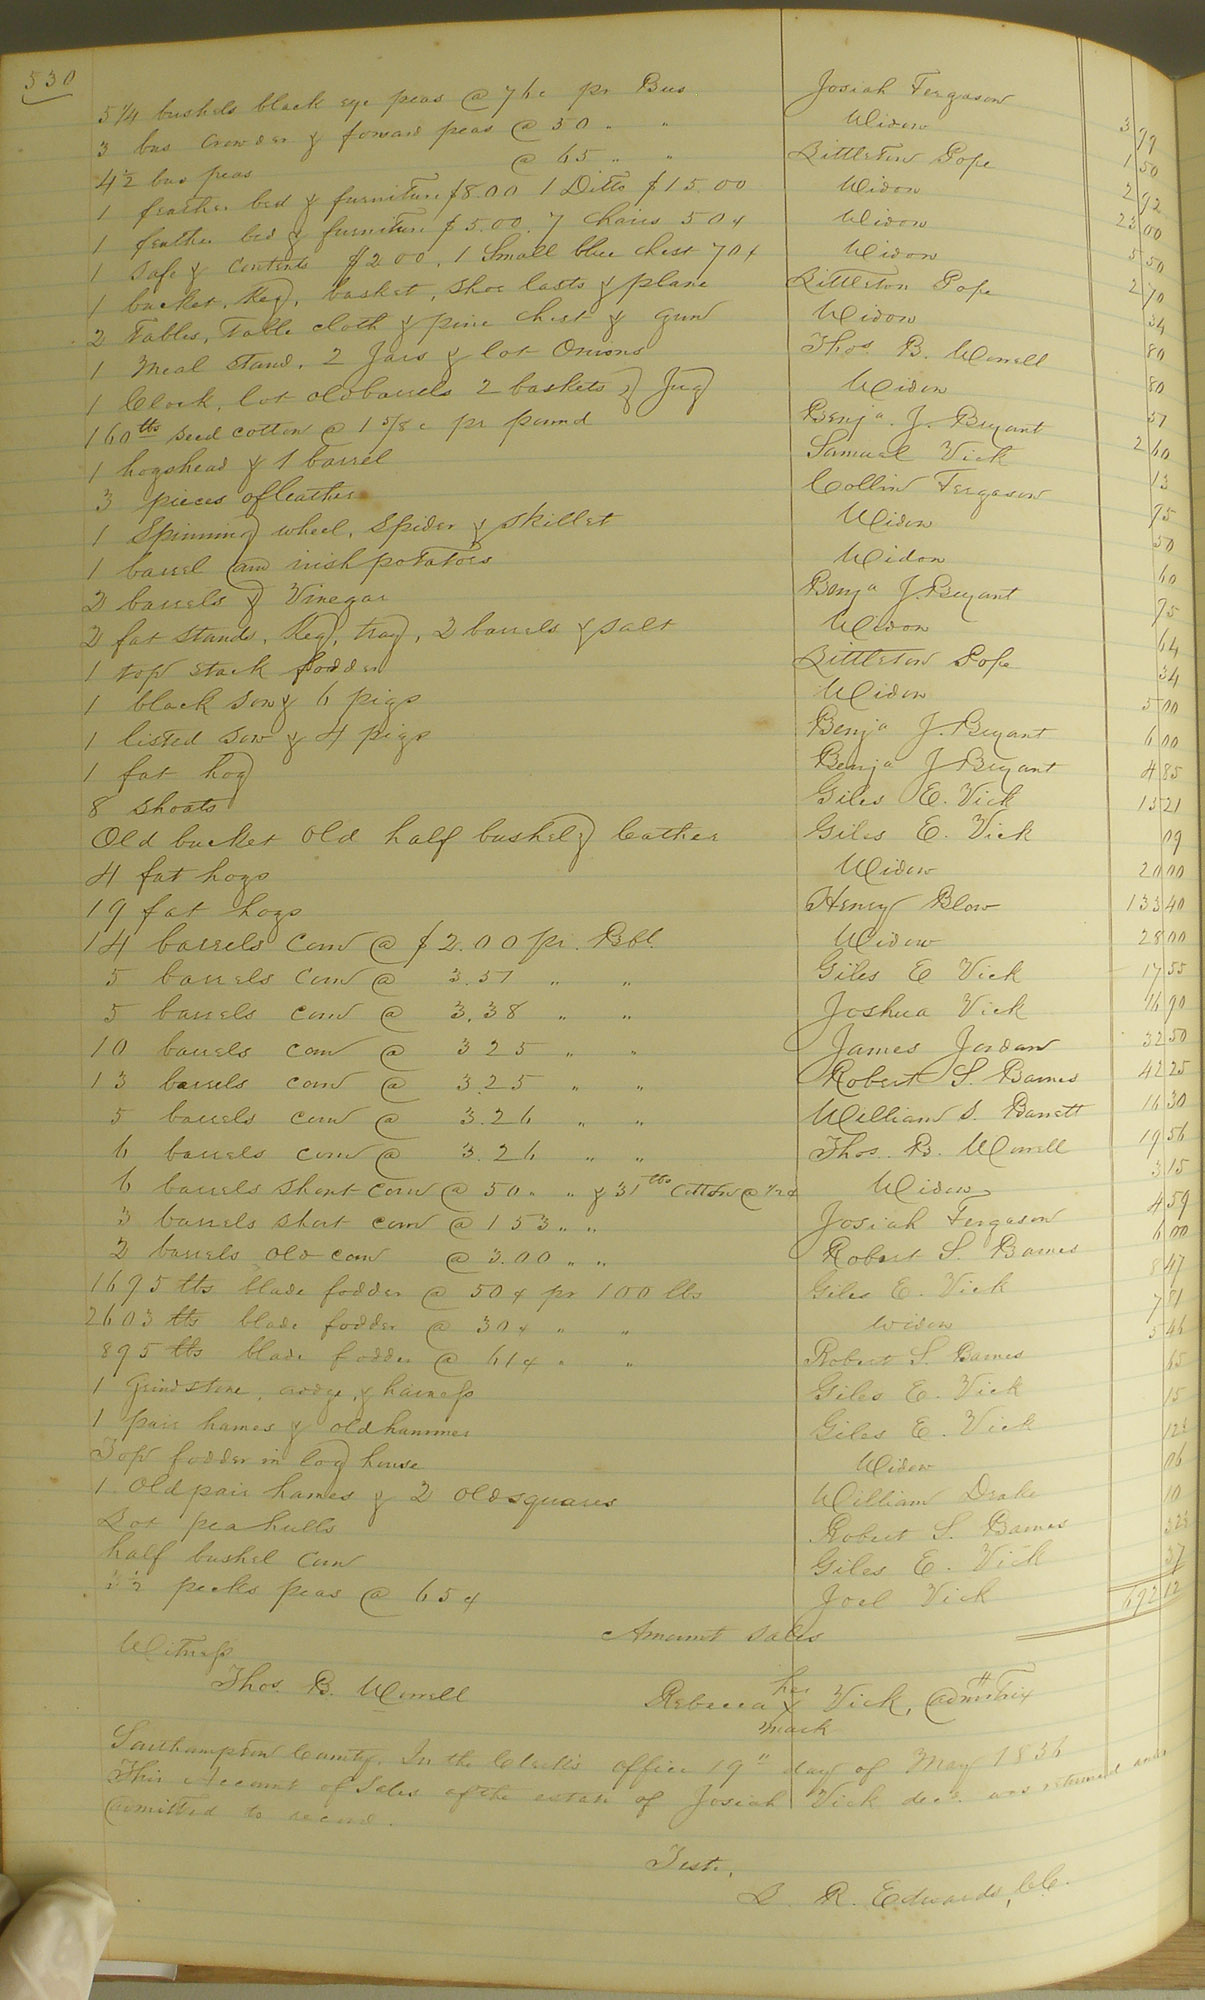 530
5 1/4 bushels black eye peas @ 76c pr Bus Josiah Fergason 3 99
3 bus crowder & forward peas @ 50 " " Widow 1 50
4½ bus peas @ 65 " " Littleton Pope 2 92
1 feather bed & furniture $8.00 1 Ditto $15.00 Widow 23 00
1 feather bed & furniture $5.00. 7 chairs 50¢ Widow 5 50
1 Safe & contents $2.00, 1 Small blue chest 70¢ Widow 2 70
1 bucket, Keg, basket, shoe lasts & plane Littleton Pope 34
2 Tables, Table cloth & pine chest & gun Widow 80
1 Meal stand, 2 Jars & lot Onions Thos B. Worrell 80
1 Clock, lot old barrels 2 baskets & Jug Widow 57
160 lbs seed cotton @ 1 5/8 c pr pound Benja. J. Bryant 2 60
1 hogshead & 1 barrel Samuel Vick 13
3 pieces of leather Collin Fergason 95
1 Spinning wheel, Spider & skillet Widow 50
1 barrel and irish potatoes Widow 60
2 barrels & Vinegar Benja J. Bryant 95
2 fat stands, Keg, tray, 2 barrels & salt Widow 64
1 top stack fodder Littleton Pope 34
1 black sow & 6 pigs Widow 5 00
1 listed sow & 4 pigs Benja J. Bryant 6 00
1 fat hog Benja J Bryant 4 85
8 shoats Giles E. Vick 13 21
Old bucket old half bushel & leather Giles E. Vick 09
4 fat hogs Widow 20 00
19 fat hogs Henry Blow 133 40
14 barrels corn @ $2.00 pr. Bbl. Widow 28 00
5 barrels corn @ 3.51 " " Giles E Vick 17 55
5 barrels corn @ 3.38 " " Joshua Vick 16 90
10 barrels corn @ 3 25 " " James Jordan 32 50
13 barrels corn @ 3.25 " " Robert S. Barnes 42 25
5 barrels corn @ 3.26 " " William S. Barrett 16 30
6 barrels corn @ 3.26 " " Thos. B. Worrell 19 56
6 barrels short corn @ 50 " " & 31 lbs cotton @ ½¢ Widow 3 15
3 barrels short corn @ 153 " " Josiah Fergason 4 59
2 barrels old corn @ 3.00 " " Robert S. Barnes 6 00
1695 lbs blade fodder @ 50¢ pr 100 lbs Giles E. Vick 8 47
2603 lbs blade fodder @ 30¢ " " Widow 7 81
895 lbs blade fodder @ 61¢ " " Robert S. Barnes 5 46
1 Grindstone, & harness Giles E. Vick 65
1 pair hames & old hammer Giles E. Vick 15
Top fodder in log house Widow 12½
1 Old pair hames & 2 old squares William Drake 06
Lot pea hulls Robert S. Barnes 10
half bushel corn Giles E. Vick 32½
3½ pecks peas @ 65¢ Joel Vick 57
Amount sales 692 12
Witness
Thos. B. Worrell Rebecca her X mark Vick, Admtrix
Southampton County. In the Clerk's office 19" day of May 1836
This Account of Sales of the estate of Josiah Vick decd. was returned and
admitted to record.
Test.
L. R. Edwards, C.C.